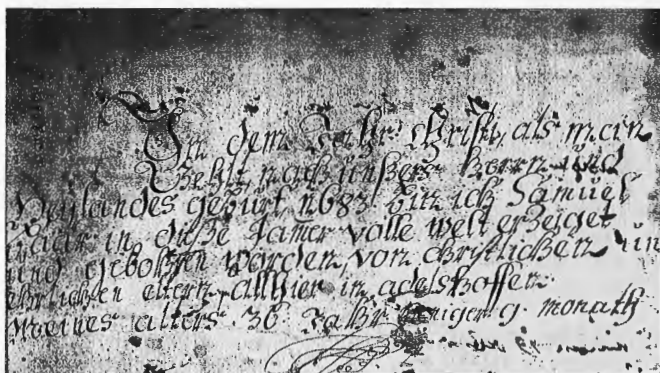 In dem Jahr Christi, als man
Zehlt, nach unßers Herrn und
Heÿlandes geburt, 1683 bin ich Samuel
in diße Jamer volle welt erzeiget
und gebohren worden, von christlichen un
ehrlichen eltern, allhier in adelshoffen
meines alters 36 Jahr weniger 9 monath